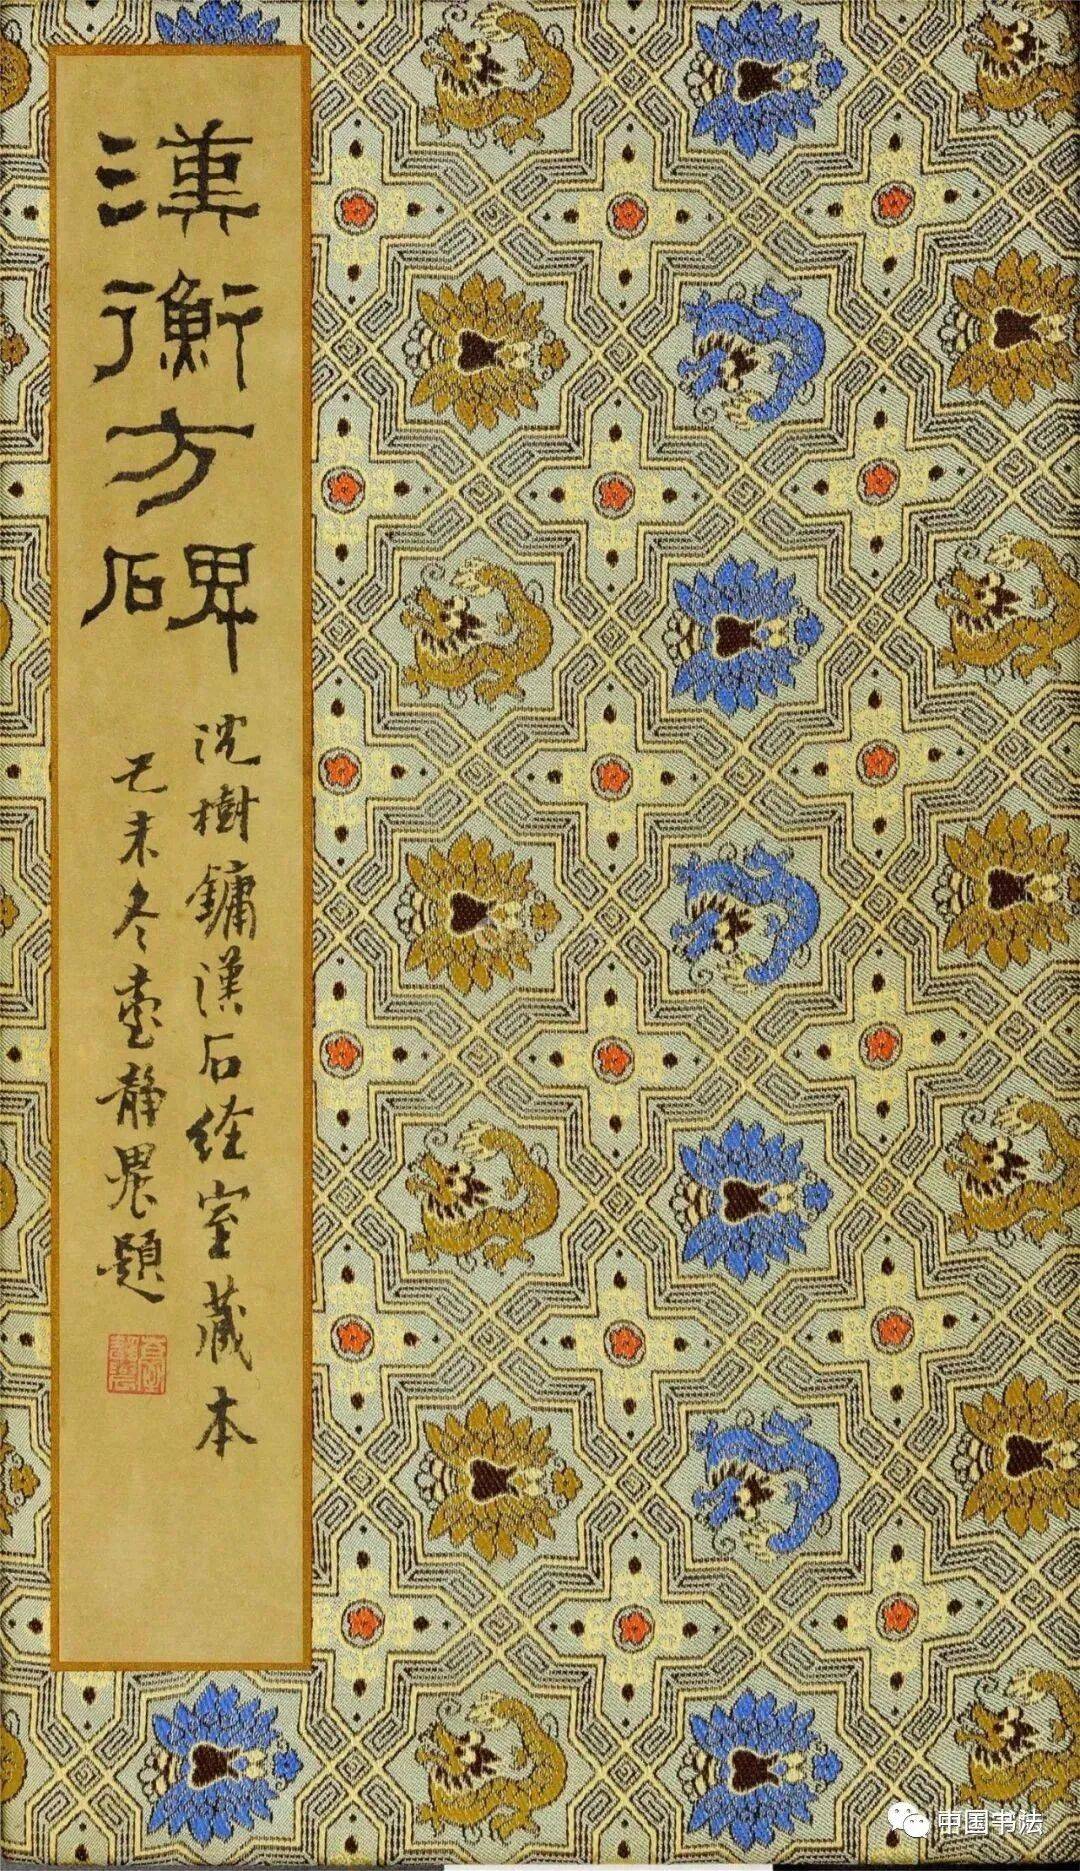 漢衡方碑
沈樹鏞漢石經室藏本
己未冬臺靜農題
中国书法